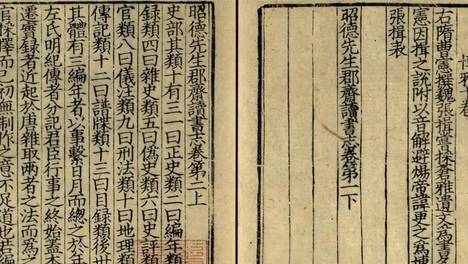 博雅十卷
右隋曹憲撰魏張揖嘗採蒼雅遺文為書
憲因揖之說附以音解避煬帝諱更之為博
張揖表
昭德先生郡齋讀書志卷第一下
昭德先生郡齋讀書志卷第二上
史部其類十有三一曰正史類二曰編年類
録類四曰雜史類五曰偽史類六曰史評類
官類八曰儀注類九曰刑法類十曰地理類
傳記類十二曰譜牒類十三曰目録類後世
其體有三編年者以事繫日月而總之於年
左氏明紀傳者分記君臣行事之終始蓋本
遷實録者近起於唐雜取兩者之法而為之
官採擇而已初無制作之意不足道也若編